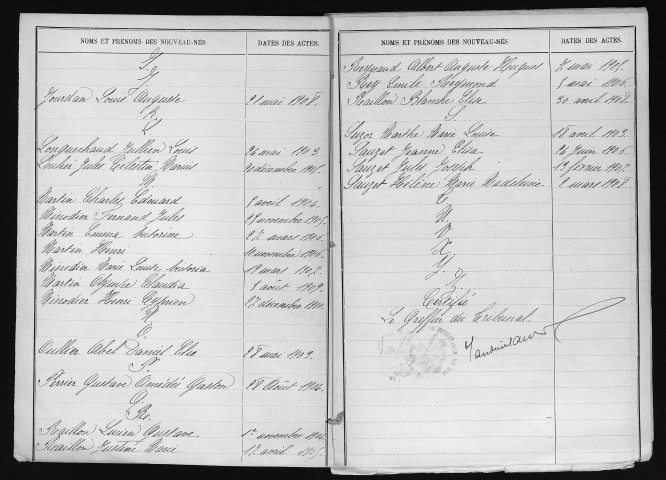 NOMS ET PRÉNOMS DES NOUVEAU-NÉS
DATES DES ACTES.
I.
J.
Jourdan Louis Auguste 21 mai 1908.
K
L
Longuechaud Jullien Louis 26 mai 1903.
Loulier Jules Célestin Marius décembre 1905.
M.
Martin Charles Edouard 8 avril 1904.
Minodier Fernand Jules 29 novembre 1905.
Martin Emma Victorine 27 mars 1906.
Martin Henri novembre 1906.
Minodier Marie Louise Victoria 19 mars 1907.
Martin Claudia 8 août 1909.
Minodier Henri Cyprien 27 décembre 1910.
N
O.
Oullier Abel Daniel Elie 28 mai 1909.
P.
Perrier Gustave Amédée Gaston 28 Août 1904.
Q.
R.
Roaillon Lucien Gustave 1er novembre 1904.
Roaillon Justine Marie 17 avril 1905.
NOMS ET PRÉNOMS DES NOUVEAU-NÉS
DATES DES ACTES.
Reynaud Albert Auguste Hugues 7 mai 1905.
Rey Emile Raymond 8 mai 1906.
Roaillon Blanche Elise 30 avril 1908.
S
Suzor Marthe Marie Louise 18 avril 1903.
Sauzet Jeanne Elisa 26 juin 1906.
Sauzet Jules Joseph février 1907.
Sauzet Hélène Marie Madeleine 2 mars 1908.
T
U.
V
X
Y.
Z
Certifié
Le Greffier du Tribunal